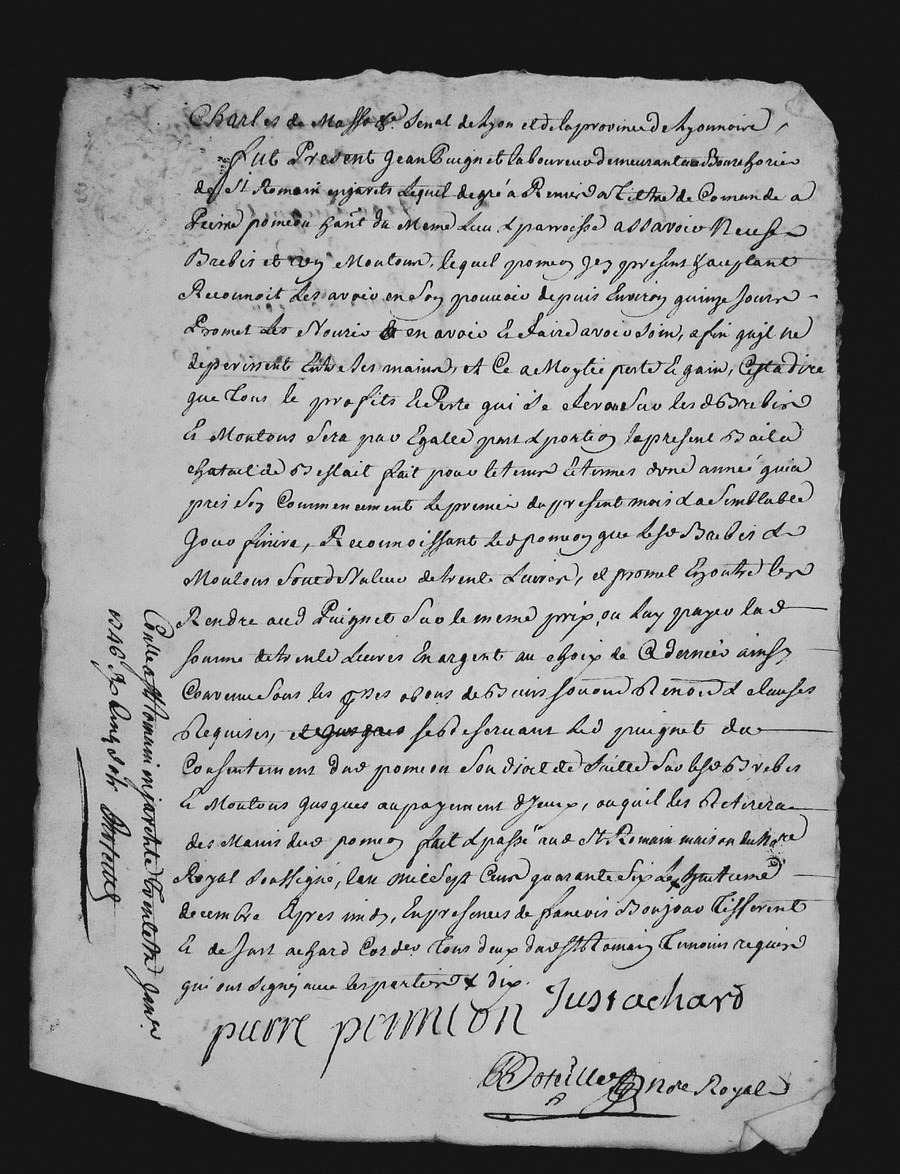 Charles de Masso &a. Senal de Lyon et de la province de Lyonnoire
fut Present Jean Puignet laboureur demeurant au Bourg
de St Romain enjarets Lequel de gré a Remis a Tiltre de Comande a
Pierre pomeon hant du Meme Lieu & parroisse assavoir Neuf
Brebis et un Moutons, lequel pomeon Jcy present & aceptant
Reconnoit Les avoir en Son pouvoir depuis Environ quinze Jours
Promet Les Nourir & en avoir Et faire avoir Soin, afin quil ne
deperissent Entre Ses mains, et Ce a Moytie perte Et gain, Cestadire
que Tous le profits Et Perte qui Se Sur lesd Brebis
Et Moutons Sera par Egalle part & portion le present Bail a
chatail de Bestait fait pour le tems Et termes dune année qui a
pris Son Commencement Le premier du present mois & a Semblable
Jour finira, Reconnoissant Led pomeon que Lesd Brebis &
Moutons Sont de Valeur de trente Livres, et promet En outre les
Rendre aud Puignet Sur le meme prix, ou Luy payer lad
somme de trente Livres En argent au choix de Ce dernier ainsy
Convenu Sous les obons de Biens Renon & clauses
Requises, se Reservant Led puignet du
Consentement dud pomeon Son droit de Suitte Sur lesd Brebis
Et Moutons Jusques au payement dyceux, ou quil les Retirera
des Mains dud pomeon fait & passé aud St Romain maison du Nore
Royal Soussigné, Lan Mil Sept Cens quarante Six Le huitieme
decembre Apres midy, En presences de francois Boujour Tisserent
Et de Just achard Cordier Tous deux dud St Romain Temoins requis
qui ont Signé avec les parties & dix.
pierre pomeon Just achard
Note Royal
Conlle a St Romain en jarest le trente et Janvier
1746 R Cinq sols